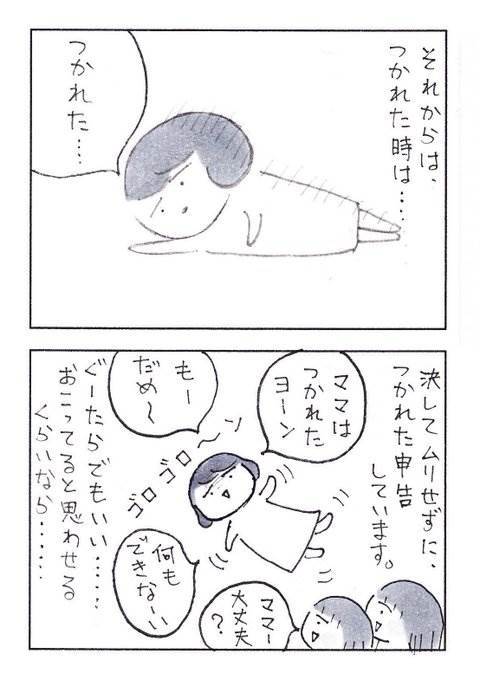 それからは、
つかれた時は‥‥
つかれた‥‥
決してムリせずに、
つかれた申告
しています。
ママは
つかれた
ヨーン
もー
だめ～
ゴロゴロ～ン
何も
できなーい
ママー
大丈夫
？
ぐーたらでもいい‥‥‥
おこってると思わせる
くらいなら‥‥‥